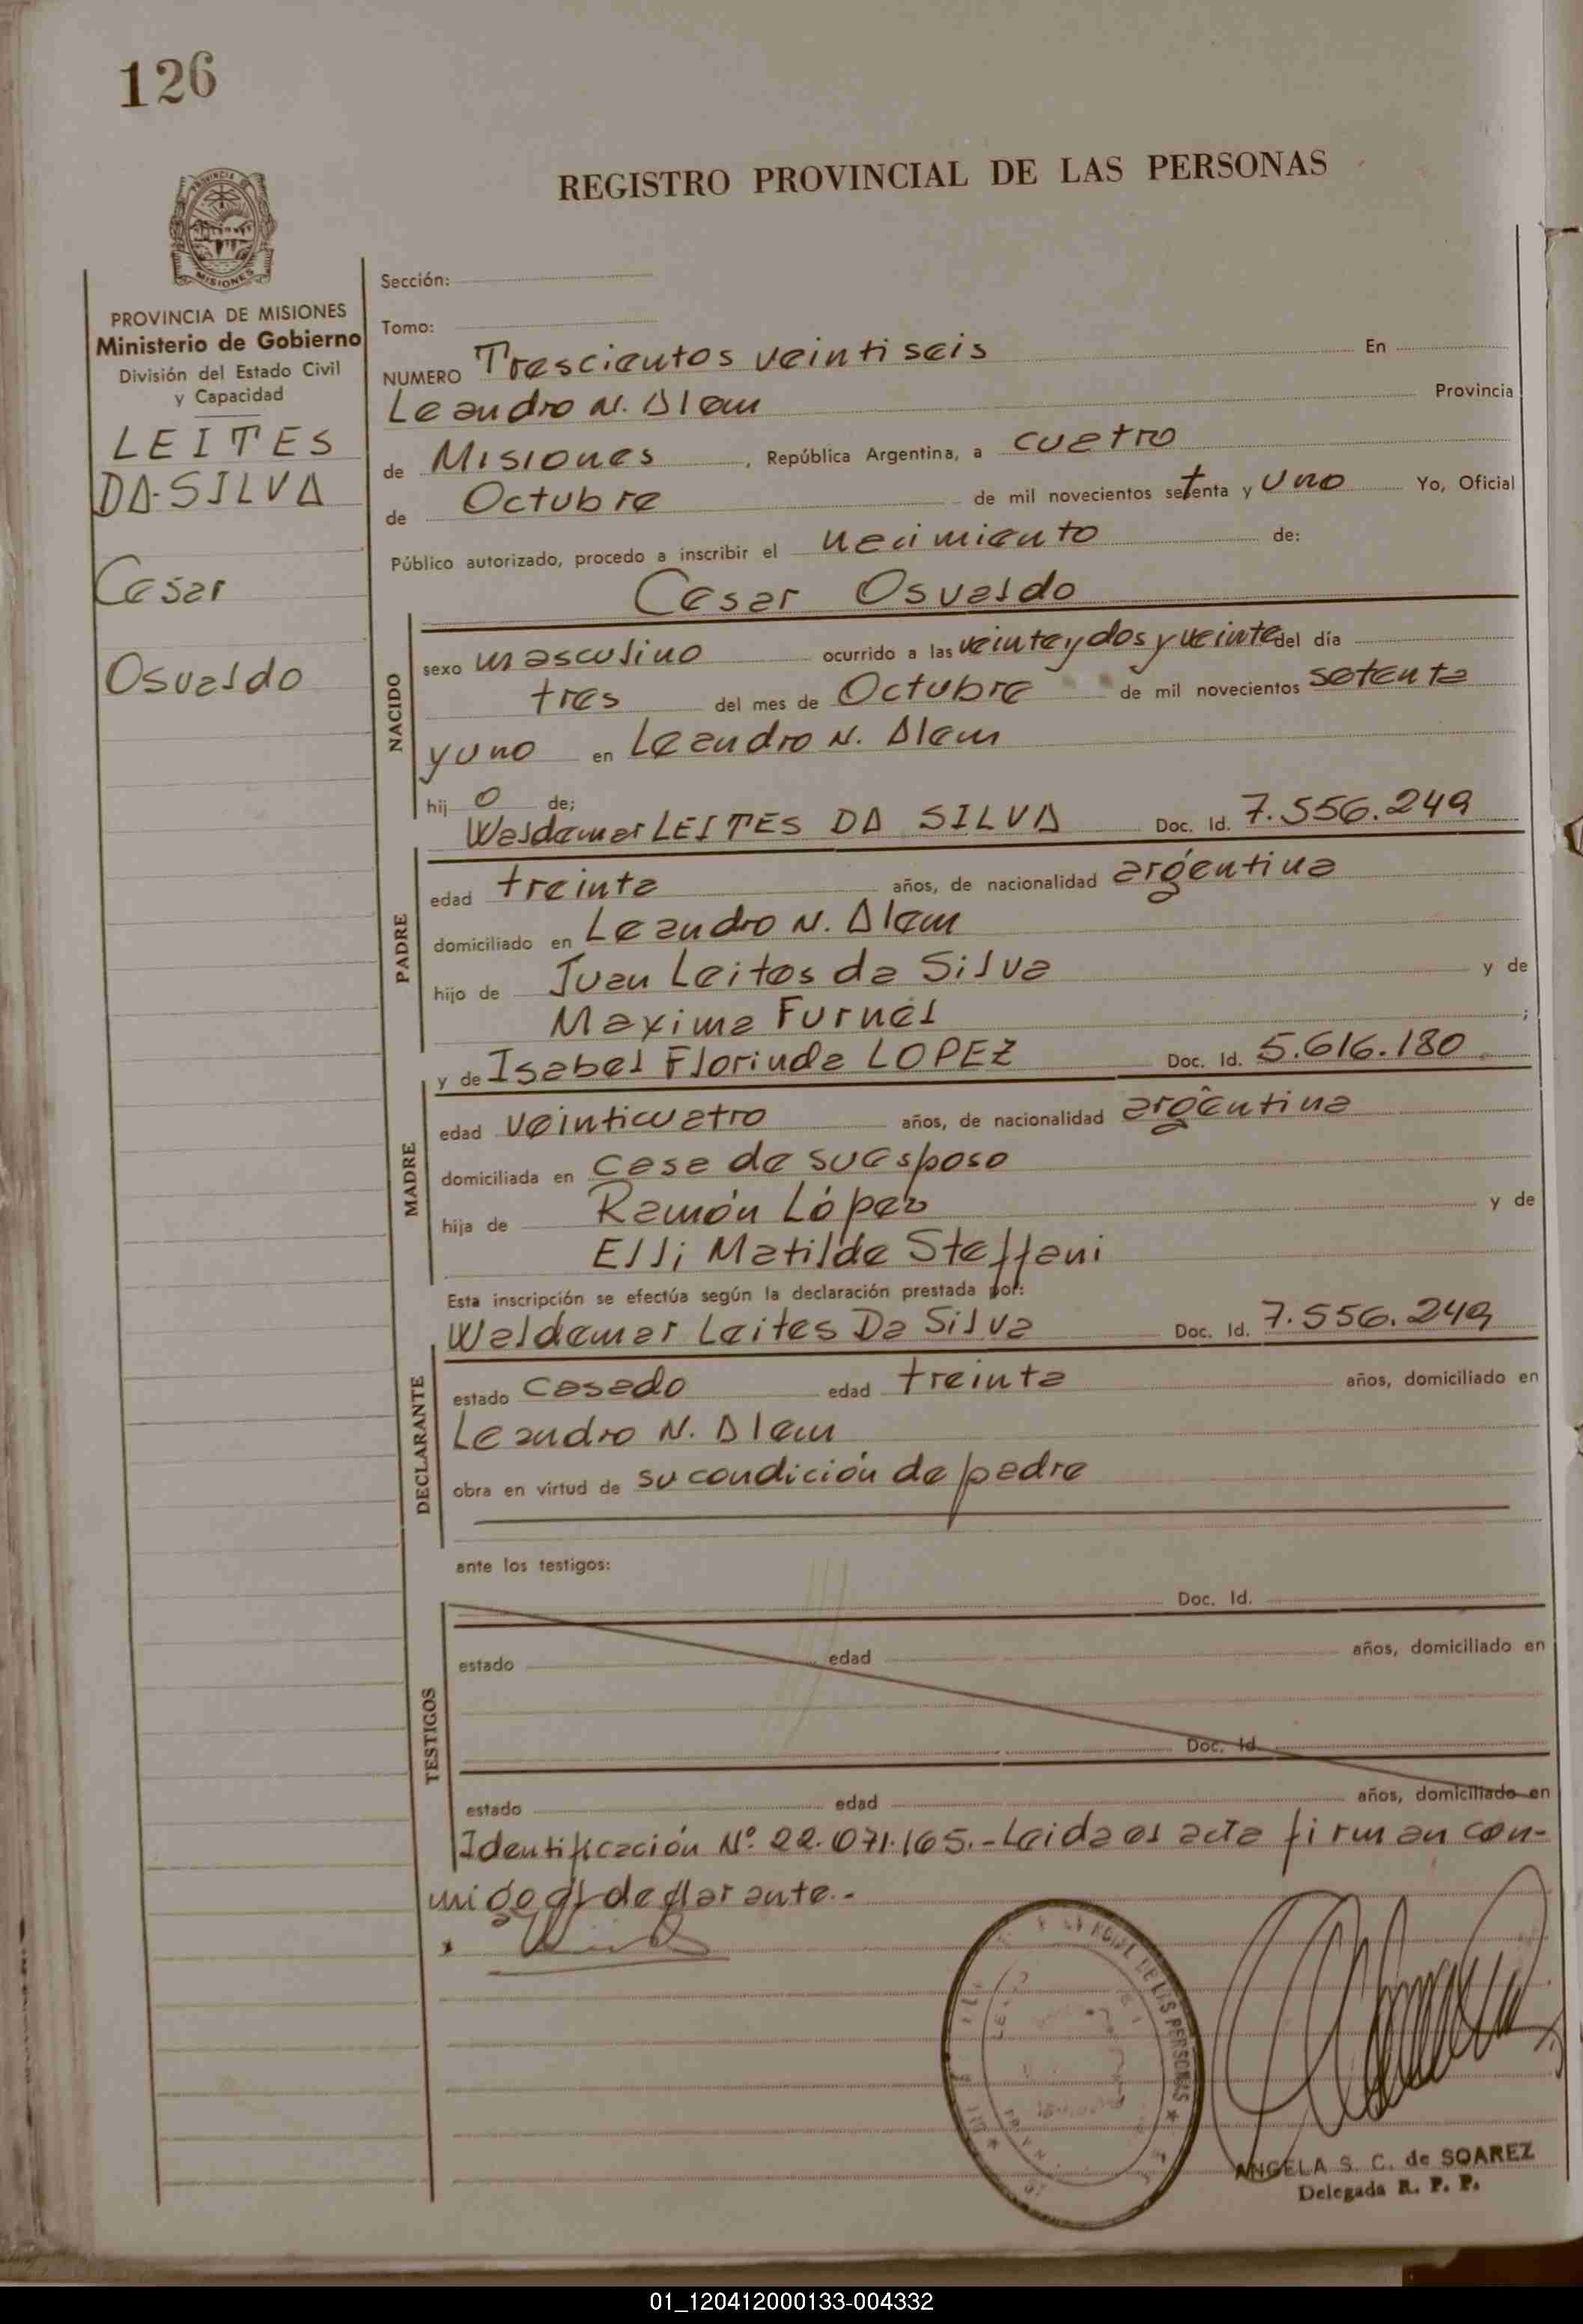 126
REGISTRO PROVINCIAL DE LAS PERSONAS
PROVINCIA DE
MISIONES
PROVINCIA DE MISIONES
Ministerio de Gobierno
División del Estado Civil
y Capacidad
LEITES
DA-SILVA
Cesar
Osvaldo
Sección:
Tomo:
NUMERO Trescientos veintiseis En
Leandro N. Alem Provincia
de Misiones, República Argentina, a cuatro
de Octubre de mil novecientos setenta y uno Yo, Oficial
Público autorizado, procedo a inscribir el nacimiento de:
Cesar Osvaldo
NACIDO
sexo masculino ocurrido a las veinte y dos y veinte del día
tres del mes de Octubre de mil novecientos setenta
y uno en Leandro N. Alem
hij o de;
Waldemar LEITES DA SILVA Doc. Id. 7.556.249
PADRE
edad treinta años, de nacionalidad argentina
domiciliado en Leandro N. Alem
hijo de Juan Leites da Silva y de
Maxima Furnel ;
y de Isabel Florinda LOPEZ Doc. Id. 5.616.180
MADRE
edad veinticuatro años, de nacionalidad argentina
domiciliada en casa de su esposo
hija de Ramón López y de
Elli Matilde Steffani
Esta inscripción se efectúa según la declaración prestada por:
Waldemar Leites Da Silva Doc. Id. 7.556.249
DECLARANTE
estado casado edad treinta años, domiciliado en
Leandro N. Alem
obra en virtud de su condición de padre
ante los testigos:
Doc. Id.
TESTIGOS
estado edad años, domiciliado en
Doc. Id.
estado edad años, domiciliado en
Identificación Nº 22.071.165.- Leida el acta firman con-
migo el declarante.-
DE LAS PERSONAS
ANGELA S. C. de SOAREZ
Delegada R. P. P.
01_120412000133-004332